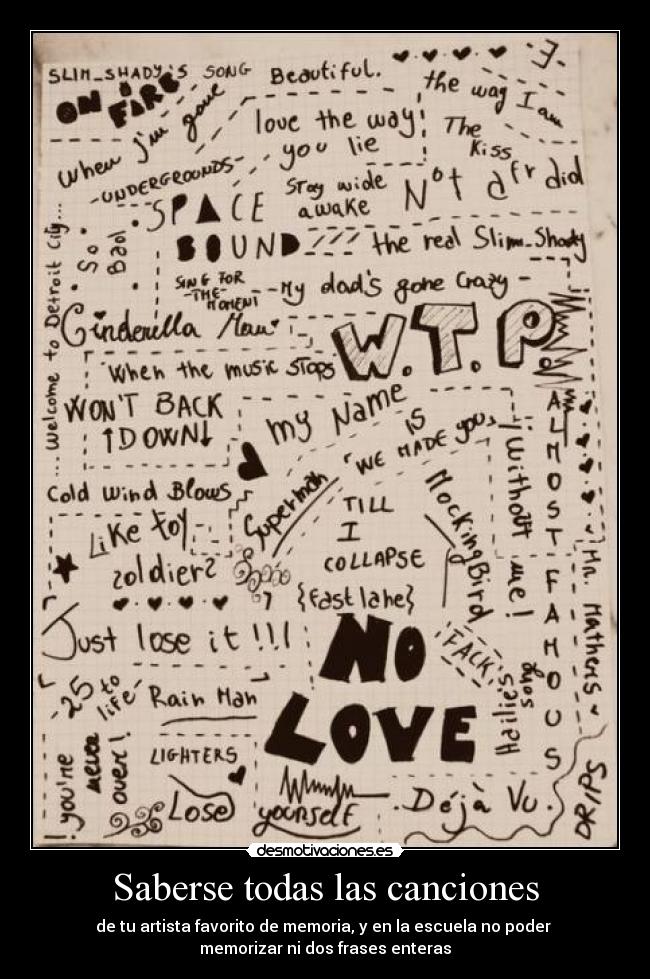 SLIM_SHADY'S SONG
Beautiful.
:3.
ON FIRE
When I'm gone
love the way
you lie
the way I am
The Kiss
-UNDERGROUNDS-
SPACE
BOUND
Stay wide
awake
Not afraid
the real Slim_Shady
...Welcome to Detroit City...
So Bad
SING FOR
-THE-
MOMENT
My dad's gone Crazy
Cinderella Man
W.T.P.
When the music stops
WON'T BACK
↑DOWN↓
my Name
IS
WE MADE you
ALMOST FAMOUS
Without me!
Mr. Mathers
Cold Wind Blows
Superman
TILL
I
COLLAPSE
MockingBird
Like toy
soldiers
{fast lane}
Just lose it !!!
NO
LOVE
FACK
Hailie's song
-25 to life
Rain Man
you're never over!
LIGHTERS
Lose
yourself
.Déjà Vu.
DRIPS
desmotivaciones.es
Saberse todas las canciones
de tu artista favorito de memoria, y en la escuela no poder
memorizar ni dos frases enteras